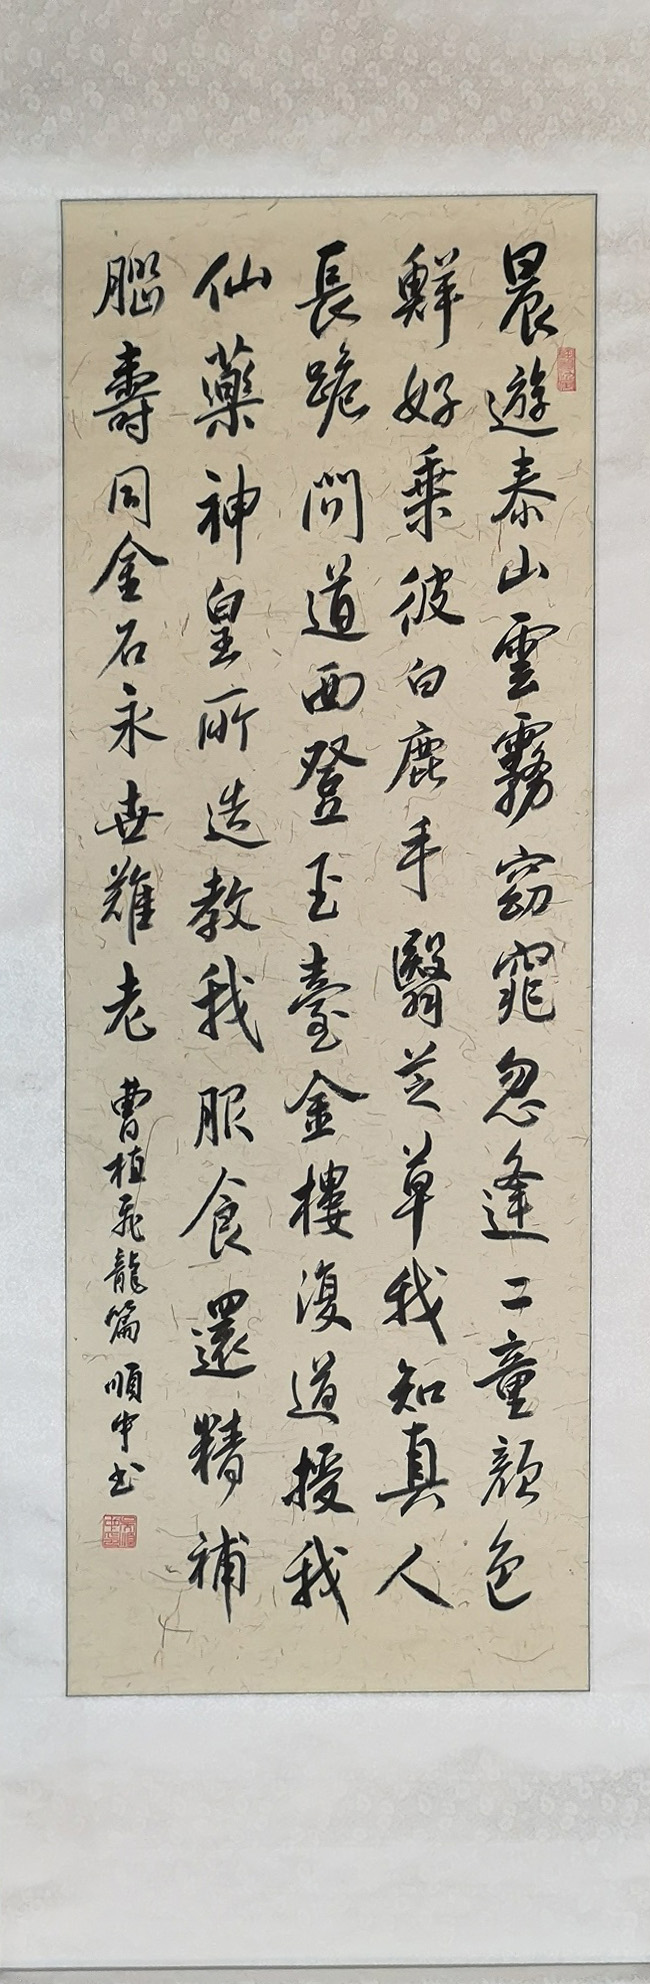 晨遊泰山雲霧窈窕忽逢二童顏色
鮮好乘彼白鹿手翳芝草我知真人
長跪問道西登玉臺金樓復道授我
仙藥神皇所造教我服食還精補
腦壽同金石永世難老
曹植飛龍篇順中书